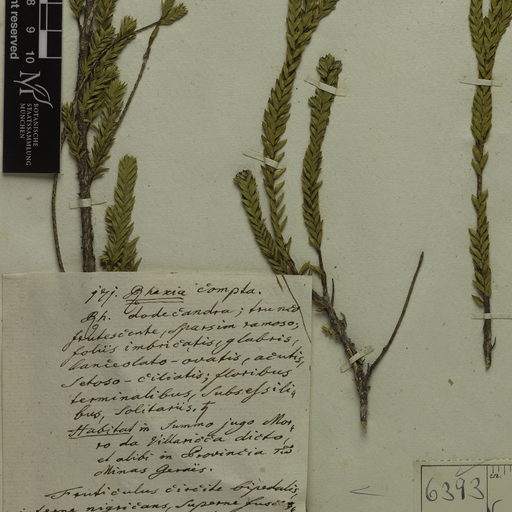 nt reserved
8 9 10
BOTANISCHE
STAATSSAMMLUNG
MÜNCHEN
Rhexia compta.
Rh. dodecandra; trunco
frutescente, sparsim ramoso;
foliis imbricatis, glabris,
lanceolato-ovatis, acutis,
setoso-ciliatis; floribus
terminalibus, subsessili-
bus, solitariis. ♄
Habitat in summo jugo Mor-
ro da Villaricca dicto,
et alibi in Provincia
Minas Geraës.
Fruticulus circite bipedalis,
inferne nigricans, superne fusces
6393